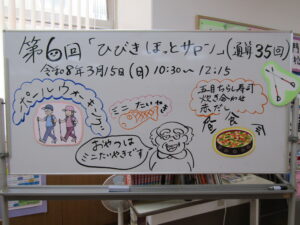 第6回「ひびきほっとサロン」(通算35回)
令和8年3月15日(日)10:30〜12:15
ポールウォーキング
ミニたいやき
おやつは
ミニたいやきです
五目ちらし寿司
炊き合わせ
赤だし
会食